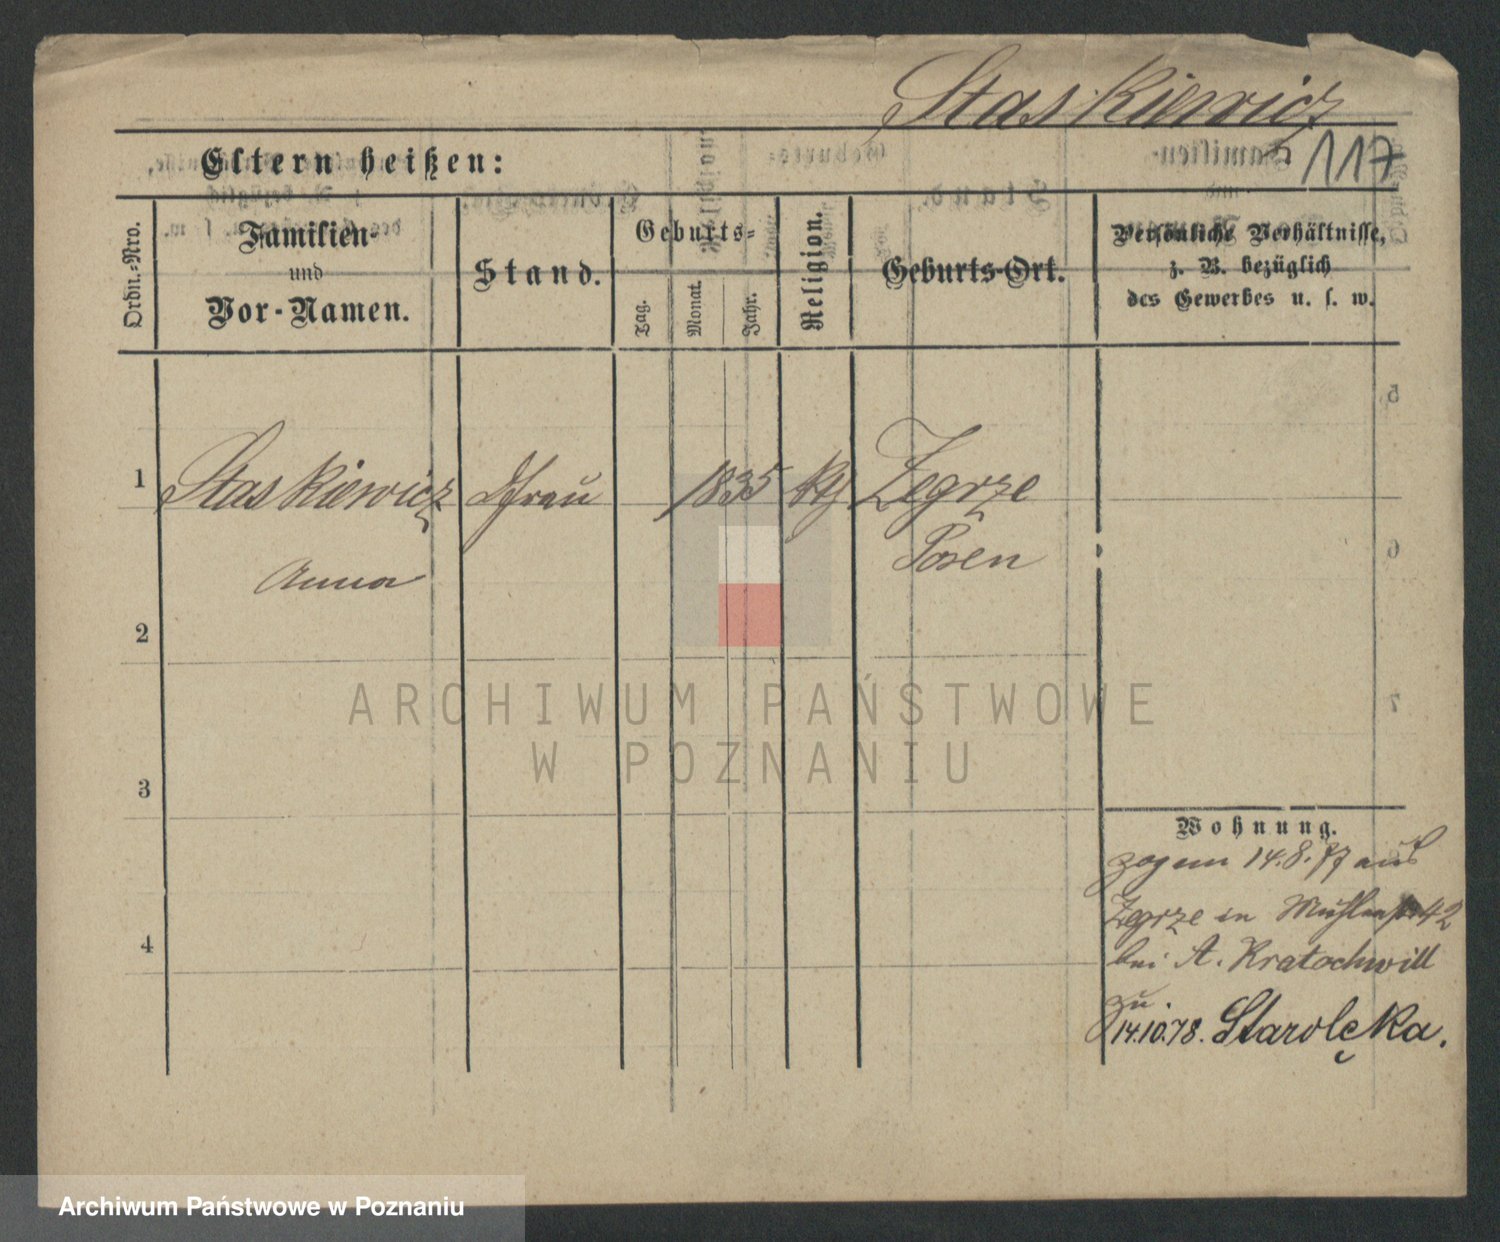 Staskiewicz
117
Eltern heißen:
Ordn.-Nro.
Familien-
und
Vor-Namen.
Stand.
Geburts-
Tag.
Monat.
Jahr.
Religion.
Geburts-Ort.
Persönliche Verhältnisse,
z. B. bezüglich
des Gewerbes u. s. w.
1 Staskiewicz frau 1835 kth Zegrze
Posen
Anna
2
3
4
ARCHIWUM PAŃSTWOWE
W POZNANIU
Wohnung.
zog am 14.8.77 aus
Zegrze in Mühlenstr 42
bei A. Kratochwill
zu.
14.10.78. Starolęka.
Archiwum Państwowe w Poznaniu